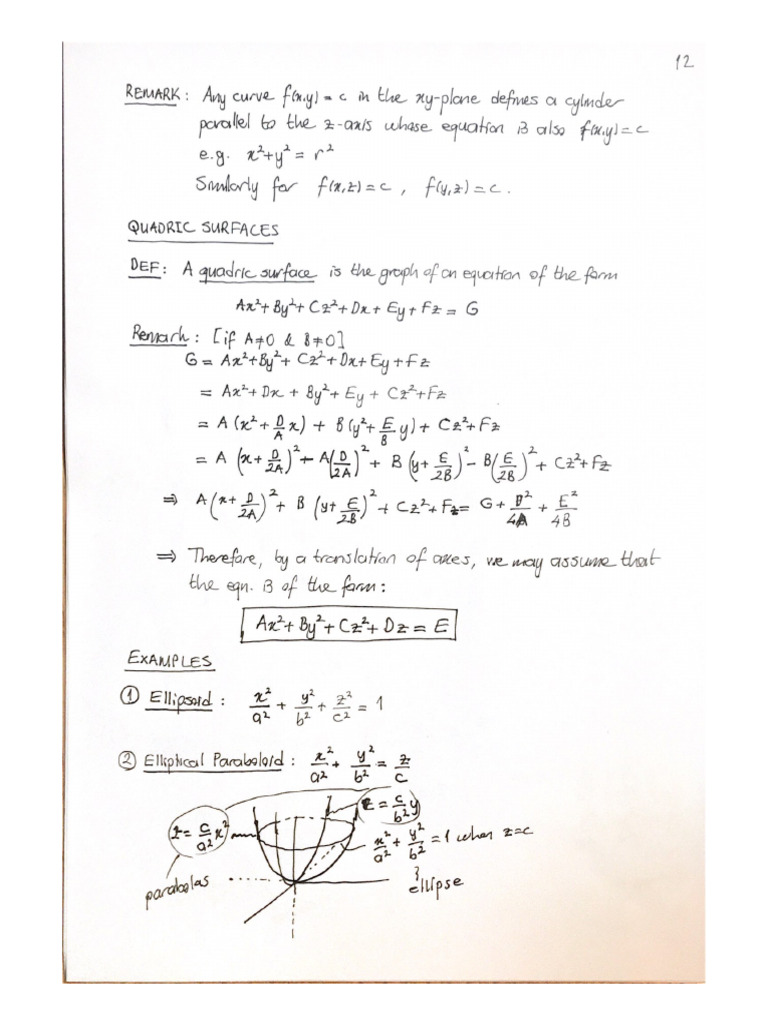 12
REMARK: Any curve f(x,y) = c in the xy-plane defines a cylinder
parallel to the z-axis whose equation is also f(x,y) = c
e.g. x²+y² = r²
Similarly for f(x,z) = c, f(y,z) = c.
QUADRIC SURFACES
DEF: A quadric surface is the graph of an equation of the form
Ax²+By²+Cz²+Dx+Ey+Fz = G
Remark: [if A≠0 & B≠0]
G = Ax²+By²+Cz²+Dx+Ey+Fz
= Ax²+Dx + By²+Ey + Cz²+Fz
= A(x²+D/A x) + B(y²+E/B y) + Cz²+Fz
= A(x+D/2A)² - A(D/2A)² + B(y+E/2B)² - B(E/2B)² + Cz²+Fz
⇒ A(x+D/2A)² + B(y+E/2B)² + Cz²+Fz = G + D²/4A + E²/4B
⇒ Therefore, by a translation of axes, we may assume that
the eqn. is of the form:
Ax²+By²+Cz²+Dz = E
EXAMPLES
① Ellipsoid: x²/a² + y²/b² + z²/c² = 1
② Elliptical Paraboloid: x²/a² + y²/b² = z/c
z = c/b² y
z = c/a² x²
x²/a² + y²/b² = 1 when z=c
parabolas
ellipse